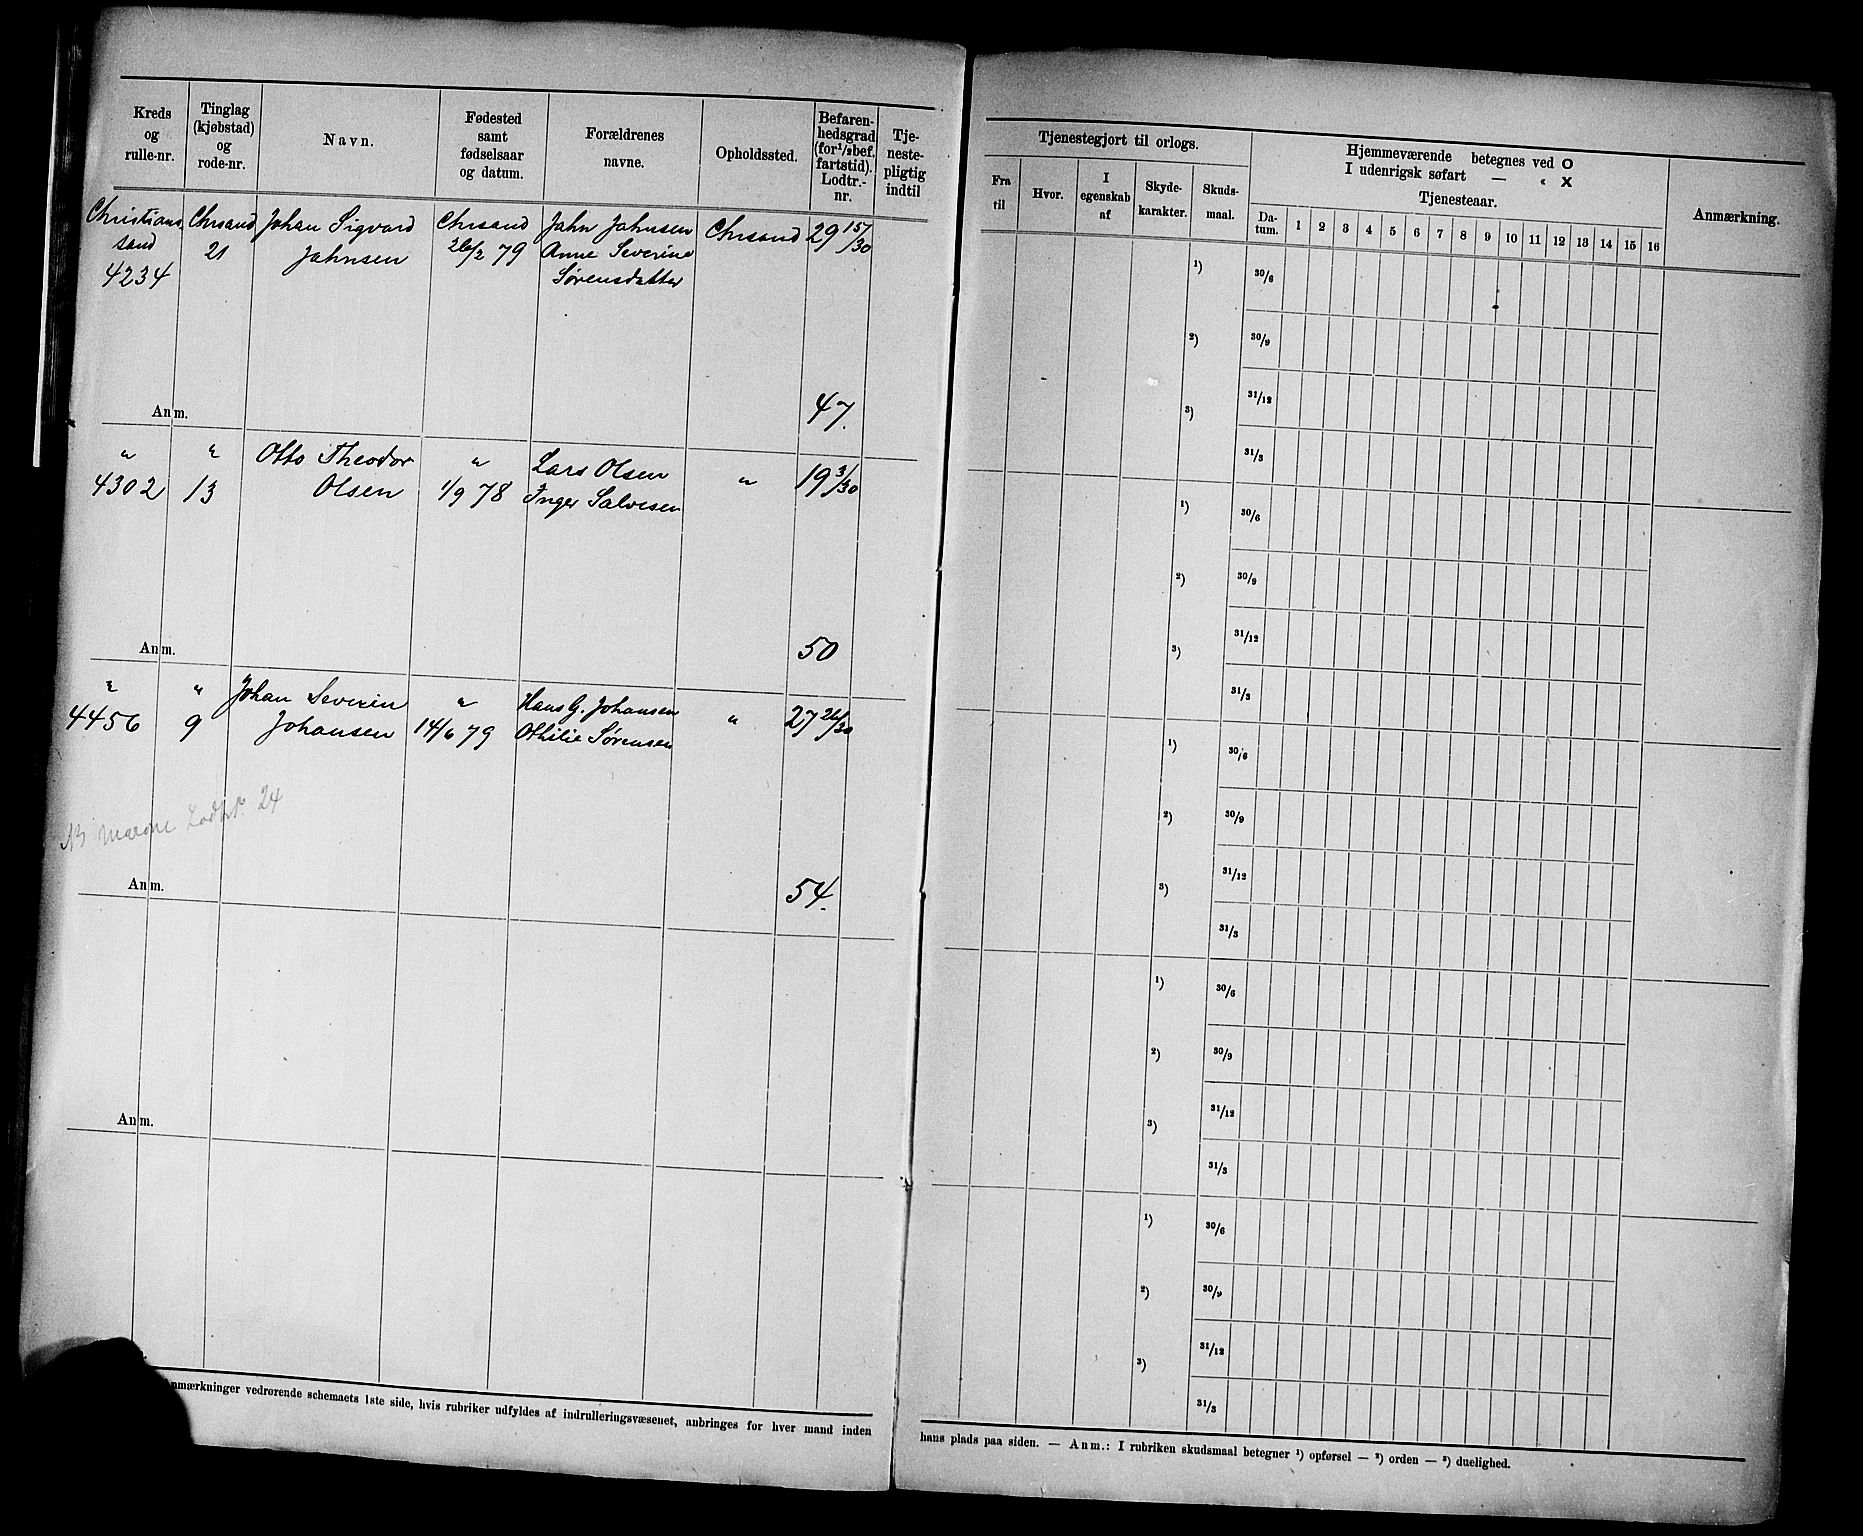 Kreds
og
rulle-nr.
Tinglag
(kjøbstad)
og
rode-nr.
Navn.
Fødested
samt
fødselsaar
og datum.
Forældrenes
navne.
Opholdssted.
Befaren-
hedsgrad
(for ½ bef.
fartstid).
Lodtr.-
nr.
Tje-
neste-
pligtig
indtil
Christians
sand
4234
Chrsand
21
Johan Sigvard
Jahnsen
Chrsand
26/2 79
Jahn Jahnsen
Anne Severine
Sørensdatter
Chrsand
29 15/30
47.
Anm.
"
4302
"
13
Otto Theodor
Olsen
"
1/9 78
Lars Olsen
Inger Salvesen
"
19 3/30
50
Anm.
"
4456
"
9
Johan Severin
Johansen
"
14/6 79
Hans G. Johansen
Othilie Sørensen
"
27 26/30
24
54.
Anm.
Anm.
nmærkninger vedrørende schemaets 1ste side, hvis rubriker udfyldes af indrulleringsvæsenet, anbringes for hver mand inden
Tjenestegjort til orlogs.
Fra
til
Hvor.
I
egenskab
af
Skyde-
karakter.
Skuds-
maal.
Hjemmeværende betegnes ved O
I udenrigsk søfart — « X
Tjenesteaar.
Da-
tum.
1 2 3 4 5 6 7 8 9 10 11 12 13 14 15 16
Anmærkning.
1) 30/6
2) 30/9
31/12
3)
31/3
1) 30/6
2) 30/9
31/12
3)
31/3
1) 30/6
2) 30/9
31/12
3)
31/3
1) 30/6
2) 30/9
31/12
3)
31/3
1) 30/6
2) 30/9
31/12
3)
31/3
hans plads paa siden. — Anm.: I rubriken skudsmaal betegner 1) opførsel — 2) orden — 3) duelighed.